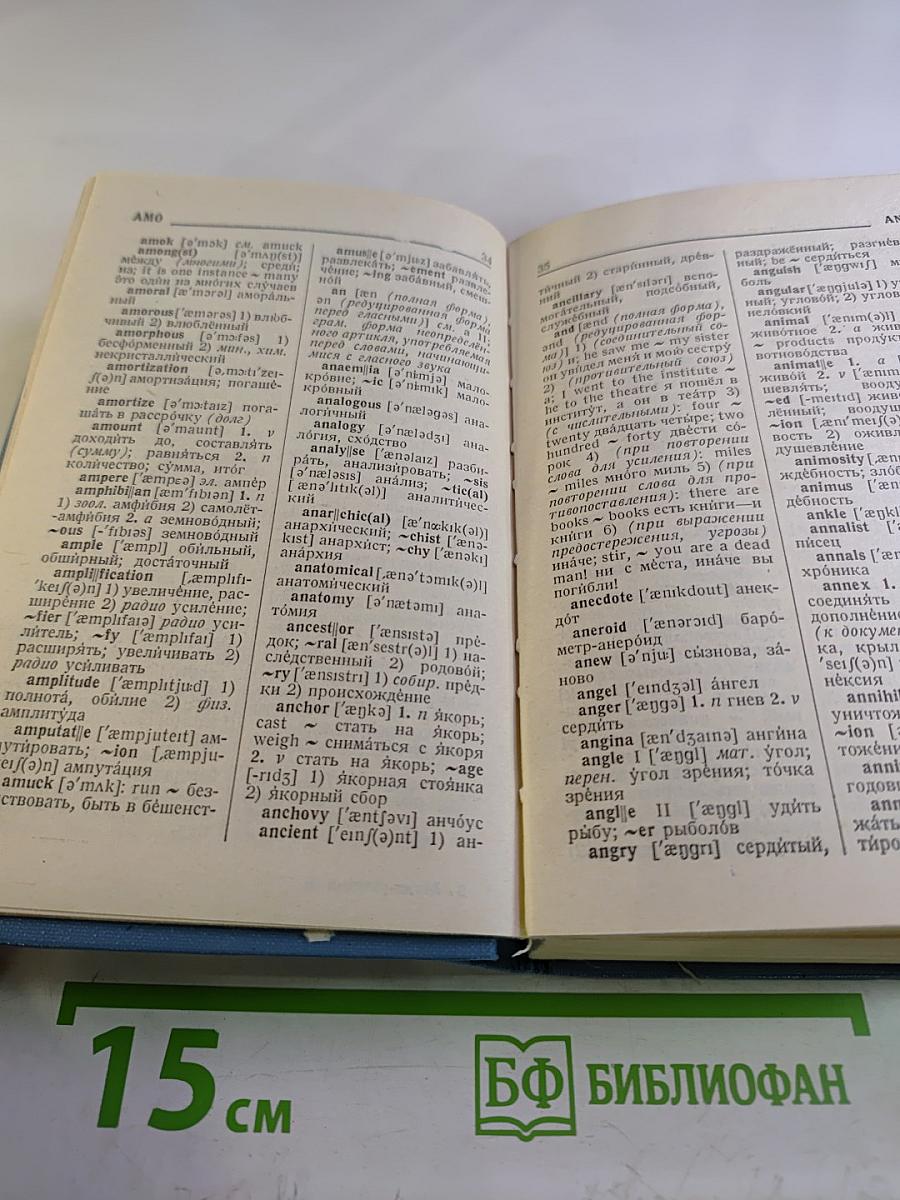 АМО
amok [ə'mɔk] см. amuck
among(st) [ə'mʌŋ(st)]
между (многими); среди;
на; it is one instance ~ many
это один из многих случаев
amoral [æ'mɔrəl] амораль-
ный
amorous ['æmərəs] 1) влюб-
чивый 2) влюблённый
amorphous [ə'mɔ:fəs] 1)
бесформенный 2) мин., хим.
некристаллический
amortization [ə,mɔ:tɪ'zeɪ-
ʃ(ə)n] амортизация; погаше-
ние
amortize [ə'mɔ:taɪz] пога-
шать в рассрочку (долг)
amount [ə'maunt] 1. v
доходить до, составлять
(сумму); равняться 2. n
количество; сумма, итог
ampere ['æmpɛə] эл. ампер
amphibi||an [æm'fɪbɪən] 1. n
1) зоол. амфибия 2) самолёт-
-амфибия 2. a земноводный;
~ous [-'fɪbɪəs] земноводный
ample ['æmpl] обильный,
обширный; достаточный
ampli||fication [,æmplɪfɪ-
'keɪʃ(ə)n] 1) увеличение, рас-
ширение 2) радио усиление;
~fier ['æmplɪfaɪə] радио уси-
литель; ~fy ['æmplɪfaɪ] 1)
расширять; увеличивать 2)
радио усиливать
amplitude ['æmplɪtju:d] 1)
полнота, обилие 2) физ.
амплитуда
amputat||e ['æmpjuteɪt] ам-
путировать; ~ion [,æmpju-
'eɪʃ(ə)n] ампутация
amuck [ə'mʌk]: run ~ без-
ствовать, быть в бешенст-
34
amus||e [ə'mju:z] забавлять,
развлекать; ~ement развле-
чение; ~ing забавный, смеш-
ной
an [æn (полная форма),
ən (редуцированная форма
перед гласными)] см. a II;
грам. форма неопределён-
ного артикля, употребляемая
перед словами, начинающи-
мися с гласного звука
anaem||ia [ə'ni:mjə] мало-
кровие; ~ic [ə'ni:mɪk] мало-
кровный
analogous [ə'næləgəs] ана-
логичный
analogy [ə'nælədʒɪ] ана-
логия, сходство
analy||se ['ænəlaɪz] разби-
рать, анализировать; ~sis
[ə'næləsɪs] анализ; ~tic(al)
[,ænə'lɪtɪk(əl)] аналитичес-
кий
anar||chic(al) [æ'nɑ:kɪk(əl)]
анархический; ~chist ['ænə-
kɪst] анархист; ~chy ['ænəkɪ]
анархия
anatomical [,ænə'tɔmɪk(ə)l]
анатомический
anatomy [ə'nætəmɪ] ана-
томия
ancest||or ['ænsɪstə] пре-
док; ~ral [æn'sestr(ə)l] 1) на-
следственный 2) родовой;
~ry ['ænsɪstrɪ] 1) собир. пред-
ки 2) происхождение
anchor ['æŋkə] 1. n якорь;
cast ~ стать на якорь;
weigh ~ сниматься с якоря
2. v стать на якорь; ~age
[-rɪdʒ] 1) якорная стоянка
2) якорный сбор
anchovy ['æntʃəvɪ] анчоус
ancient ['eɪnʃ(ə)nt] 1) ан-
35
тичный 2) старинный, древ-
ний
ancillary [æn'sɪlərɪ] вспо-
могательный, подсобный,
служебный
and [ænd (полная форма),
ənd (редуцированная фор-
ма)] 1) (соединительный со-
юз) и; he saw me ~ my sister
он увидел меня и мою сестру
2) (противительный союз)
а; I went to the institute ~
he to the theatre я пошёл в
институт, а он в театр 3)
(с числительными): four ~
twenty двадцать четыре; two
hundred ~ forty двести со-
рок 4) (при повторении
слова для усиления): miles
~ miles много миль 5) (при
повторении слова для про-
тивопоставления): there are
books ~ books есть книги—и
книги 6) (при выражении
предостережения, угрозы)
иначе; stir, ~ you are a dead
man! ни с места, иначе вы
погибли!
anecdote ['ænɪkdout] анек-
дот
aneroid ['ænərɔɪd] баро-
метр-анероид
anew [ə'nju:] сызнова, за-
ново
angel ['eɪndʒəl] ангел
anger ['æŋgə] 1. n гнев 2. v
сердить
angina [æn'dʒaɪnə] ангина
angle I ['æŋgl] мат. угол;
перен. угол зрения; точка
зрения
angl||e II ['æŋgl] удить
рыбу; ~er рыболов
angry ['æŋgrɪ] сердитый,
AN
раздражённый, разгнев
ный; be ~ сердиться
anguish ['æŋgwɪʃ] м
боль
angular ['æŋgjulə] 1) у
ный; угловой; 2) углов
неловкий
animal ['ænɪm(ə)l]
животное 2. a жив
~ products продук
вотноводства
animat||e 1. a
живой 2. v ['ænɪm
шевлять; вооду
~ed [-meɪtɪd] жив
лённый; воодуш
~ion [,ænɪ'meɪʃ(ə)
вость 2) оживл
душевление
animosity [,ænɪm
ждебность; злоб
animus ['æn
дебность
ankle ['æŋkl
annalist ['
писец
annals ['æn
хроника
annex 1.
соединять
дополнени
(к докумен
ка, крыл
'seɪʃ(ə)n]
нексия
annihil
уничтож
~ion [ə
тожени
anni
годовщ
ann
жать
тиро
15 см
БФ БИБЛИОФАН